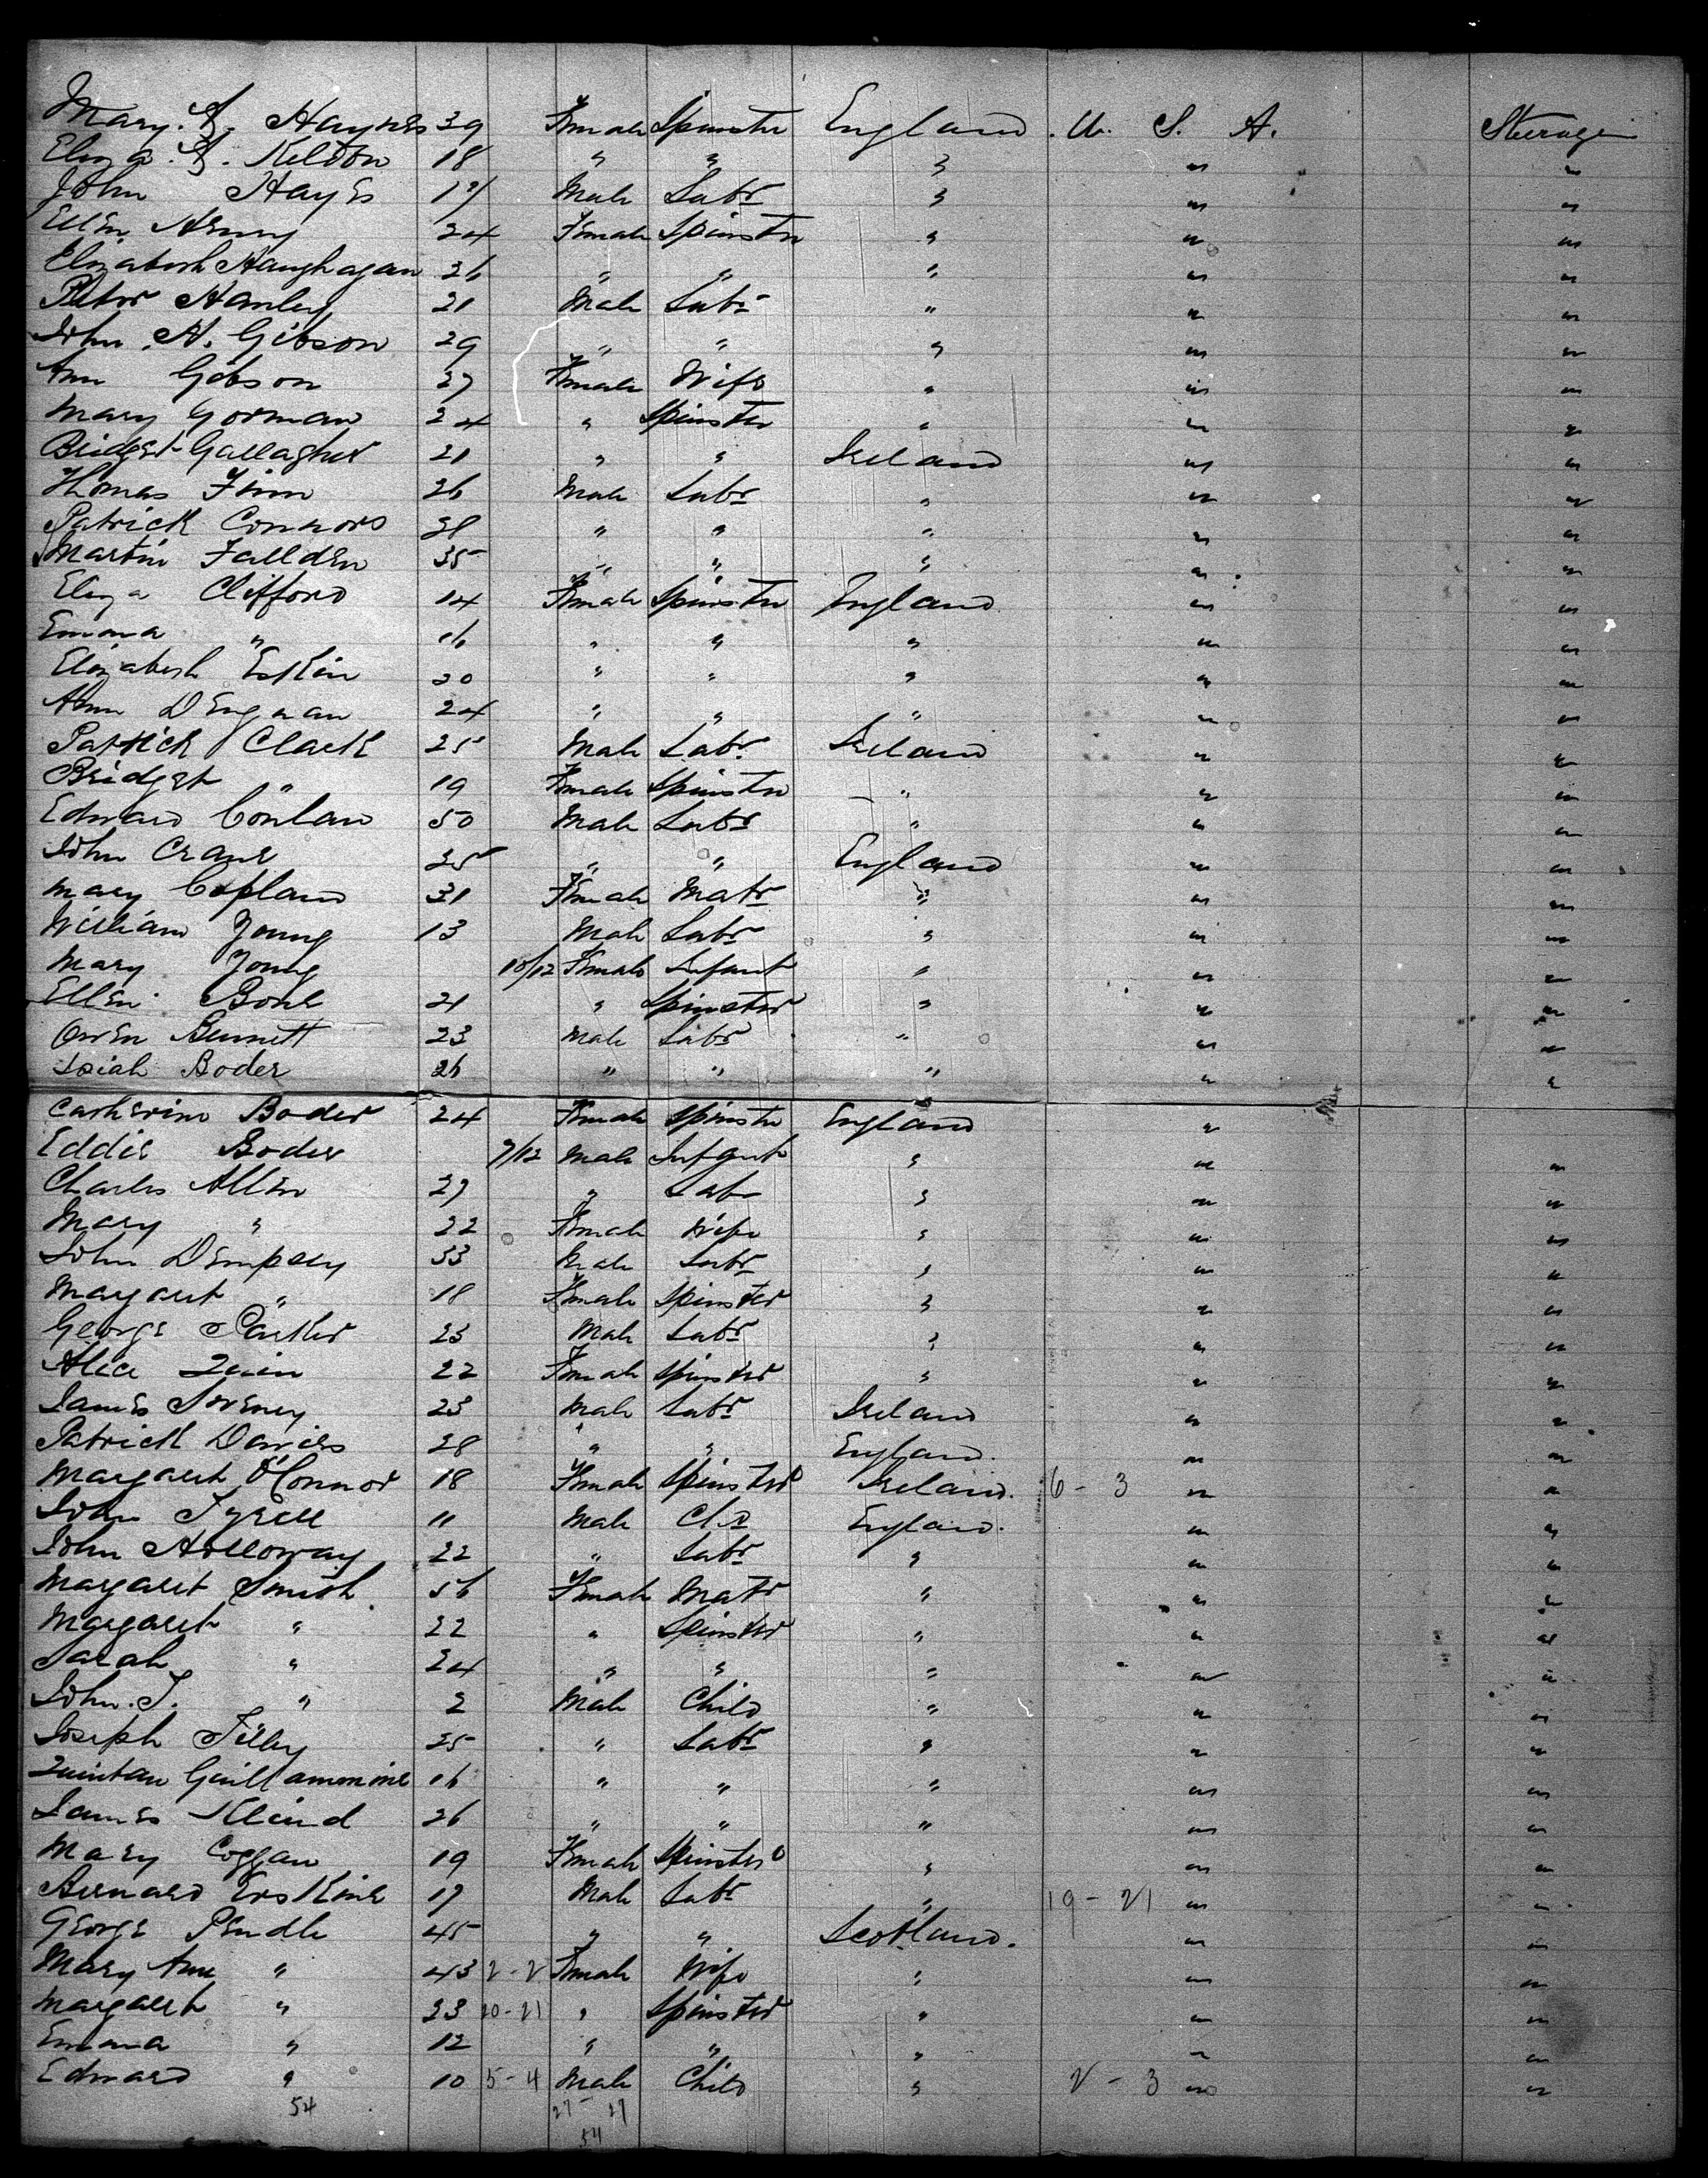 Mary. A. Haynes 39 Female Spinster England . U. S. A. Steerage
Eliza. A. Keldon 18 " " " " "
John Hayes 19 Male Labr " " "
Ellen Henry 24 Female Spinster " " "
Elizabeth Haughagan 26 " " " " "
Peter Hanley 21 Male Labr " " "
John . H. Gibson 29 " " " " "
Ann Gibson 27 Female Wife " " "
Mary Gorman 24 " Spinster " " "
Bridget Gallagher 21 " " Ireland " "
Thomas Finn 26 Male Labr " " "
Patrick Connors 28 " " " " "
Martin Fallden 35 " " " " "
Eliza Clifford 14 Female Spinster England " "
Emma " 16 " " " " "
Elizabeth Eskin 20 " " " " "
Ann Degnan 24 " " " " "
Patrick Clark 25 Male Labr Ireland " "
Bridget " 19 Female Spinster " " "
Edward Conlan 50 Male Labr " " "
John Crane 25 " " England " "
Mary Copland 31 Female Matr " " "
William Young 13 Male Labr " " "
Mary Young 10/12 Female Infant " " "
Ellen Bone 21 " Spinster " " "
Owen Bennett 23 Male Labr " " "
Isiah Boder 26 " " " " "
Catherine Boder 24 Female Spinster England "
Eddie Boder 7/12 Male Infant " " "
Charles Allen 27 " Labr " " "
Mary " 22 Female Wife " " "
John Dempsey 33 Male Labr " " "
Margaret " 18 Female Spinster " " "
George Parker 23 Male Labr " " "
Alice Quin 22 Female Spinster " " "
James 23 Male Labr Ireland " "
Patrick Davies 28 " " England. " "
Margaret O'Connor 18 Female Spinster Ireland. 6 - 3 " "
John Tyrell 11 Male Cld England. " "
John Holloway 22 " Labr " " "
Margaret Smith 56 Female Matr " " "
Margaret " 22 " Spinster " " "
Sarah " 24 " " " " "
John. T. " 2 Male Child " " "
Joseph Tilley 25 " Labr " " "
Quintan 16 " " " " "
James 26 " " " " "
Mary Coggan 19 Female Spinster " " "
Bernard Erskine 19 Male Labr " 19 - 21 " "
George Pendle 45 " " Scotland. " "
Mary Ann " 43 2 - 2 Female Wife " " "
Margaret " 23 20 - 21 " Spinster " " "
Emma " 12 " " " " "
Edward " 10 5 - 4 Male Child " 2 - 3 " "
54 27 - 27
54